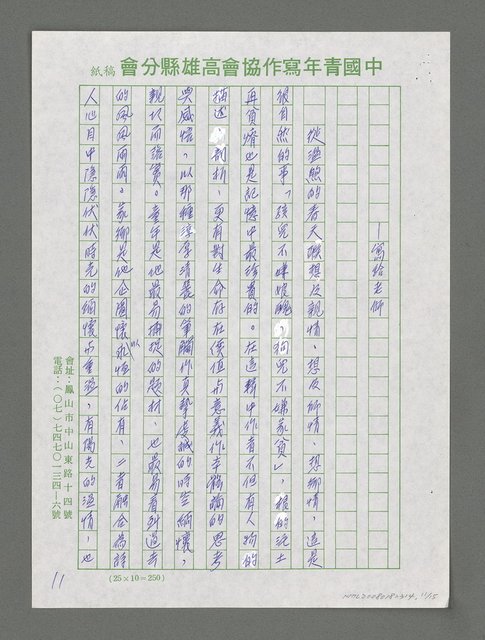 中國青年寫作協會高雄縣分會 稿紙
—寫給老師
從溫煦的春天聯想及親情、想及師情、想鄉情,這是
很自然的事,「孩兒不嫌娘醜,狗兒不嫌家貧」,根的泥土
再貧瘠也是記憶中最珍貴的。在這輯中作者不但有人物的
描述、剖析,更有對生命存在價值与意義作幸鶴的思考
與感悟,以那種淳厚清麗的筆觸作真摯虔誠的時空緬懷,
親切而踏實。童年是他最易捕捉的題材,也最易看到過去
的風風雨雨。家鄉是他企圖懷以永恆的佔有,二者融合為詩
人心目中隱隱伏伏時光的緬懷与重瑩,有陽光的溫情,也
會址:鳳山市中山東路十四號
電話:(〇七)七四七〇一三四—六號
(25×10=250)
11
NMTL20080182314, 11/15